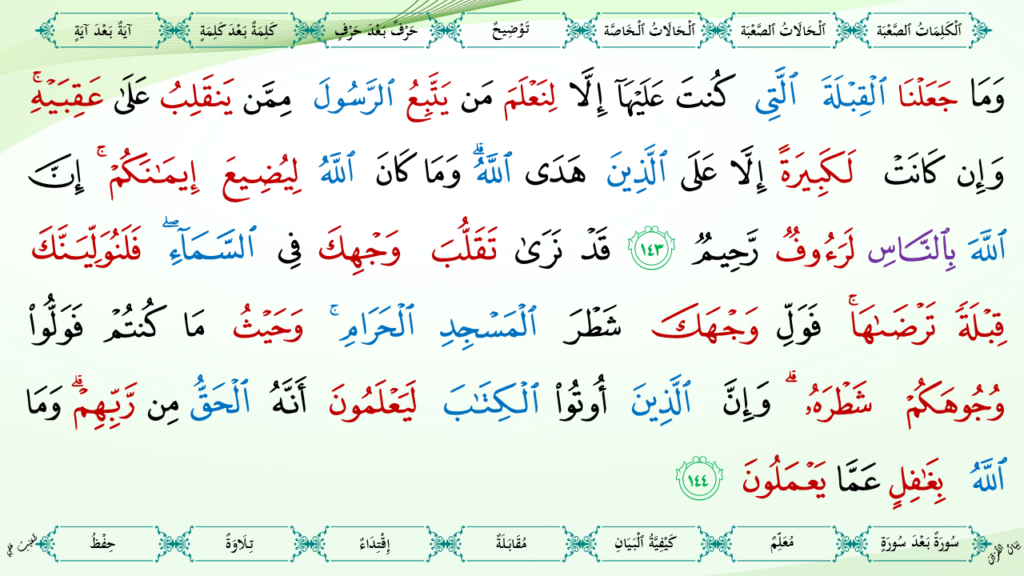 ٱلْكَلِمَاتُ ٱلصَّعْبَة ٱلْحَالَاتُ ٱلصَّعْبَة ٱلْحَالَاتُ ٱلْخَاصَّة تَوْضِيحٌ حَرْفٌ بَعْدَ حَرْفٍ كَلِمَةٌ بَعْدَ كَلِمَةٍ آيَةٌ بَعْدَ آيَةٍ
وَمَا جَعَلْنَا ٱلْقِبْلَةَ ٱلَّتِى كُنتَ عَلَيْهَآ إِلَّا لِنَعْلَمَ مَن يَتَّبِعُ ٱلرَّسُولَ مِمَّن يَنقَلِبُ عَلَىٰ عَقِبَيْهِ ۚ
وَإِن كَانَتْ لَكَبِيرَةً إِلَّا عَلَى ٱلَّذِينَ هَدَى ٱللَّهُ ۗ وَمَا كَانَ ٱللَّهُ لِيُضِيعَ إِيمَـٰنَكُمْ ۚ إِنَّ
ٱللَّهَ بِٱلنَّاسِ لَرَءُوفٌ رَّحِيمٌ ١٤٣ قَدْ نَرَىٰ تَقَلُّبَ وَجْهِكَ فِى ٱلسَّمَآءِ ۖ فَلَنُوَلِّيَنَّكَ
قِبْلَةً تَرْضَىٰهَا ۚ فَوَلِّ وَجْهَكَ شَطْرَ ٱلْمَسْجِدِ ٱلْحَرَامِ ۚ وَحَيْثُ مَا كُنتُمْ فَوَلُّوا۟
وُجُوهَكُمْ شَطْرَهُۥ ۗ وَإِنَّ ٱلَّذِينَ أُوتُوا۟ ٱلْكِتَـٰبَ لَيَعْلَمُونَ أَنَّهُ ٱلْحَقُّ مِن رَّبِّهِمْ ۗ وَمَا
ٱللَّهُ بِغَـٰفِلٍ عَمَّا يَعْمَلُونَ ١٤٤
سُورَةٌ بَعْدَ سُورَةٍ مُعَلِّمٌ كَيْفِيَّةُ ٱلْبَيَانِ مُقَابَلَةٌ إِقْتِدَاءٌ تِلَاوَةٌ حِفْظٌ